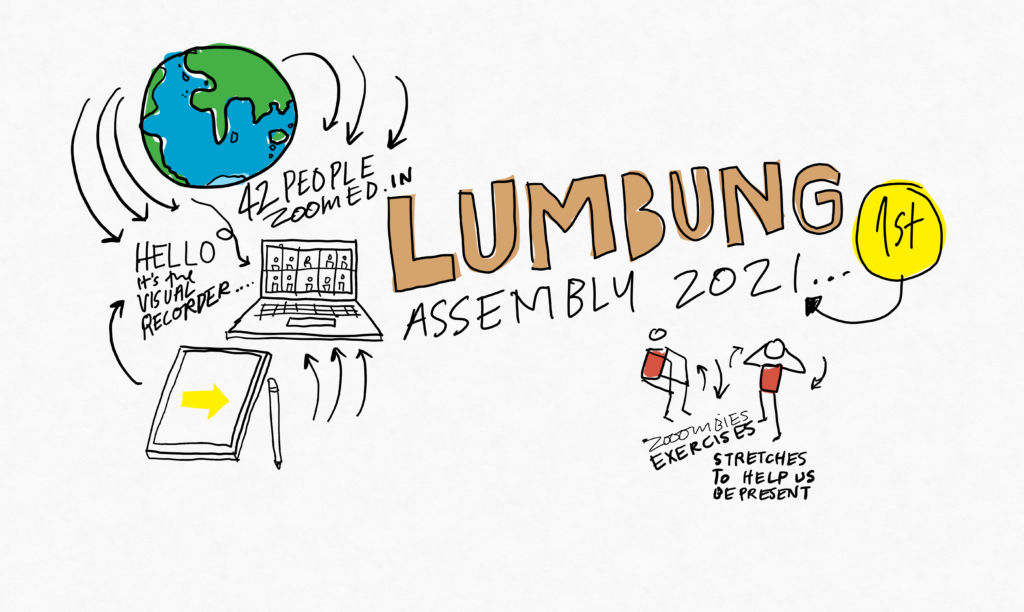 42 PEOPLE
ZOOMED.IN
LUMBUNG
1st
ASSEMBLY 2021...
HELLO
It's the
VISUAL
RECORDER....
ZOOOMBIES
EXERCISES
STRETCHES
TO HELP US
BE PRESENT